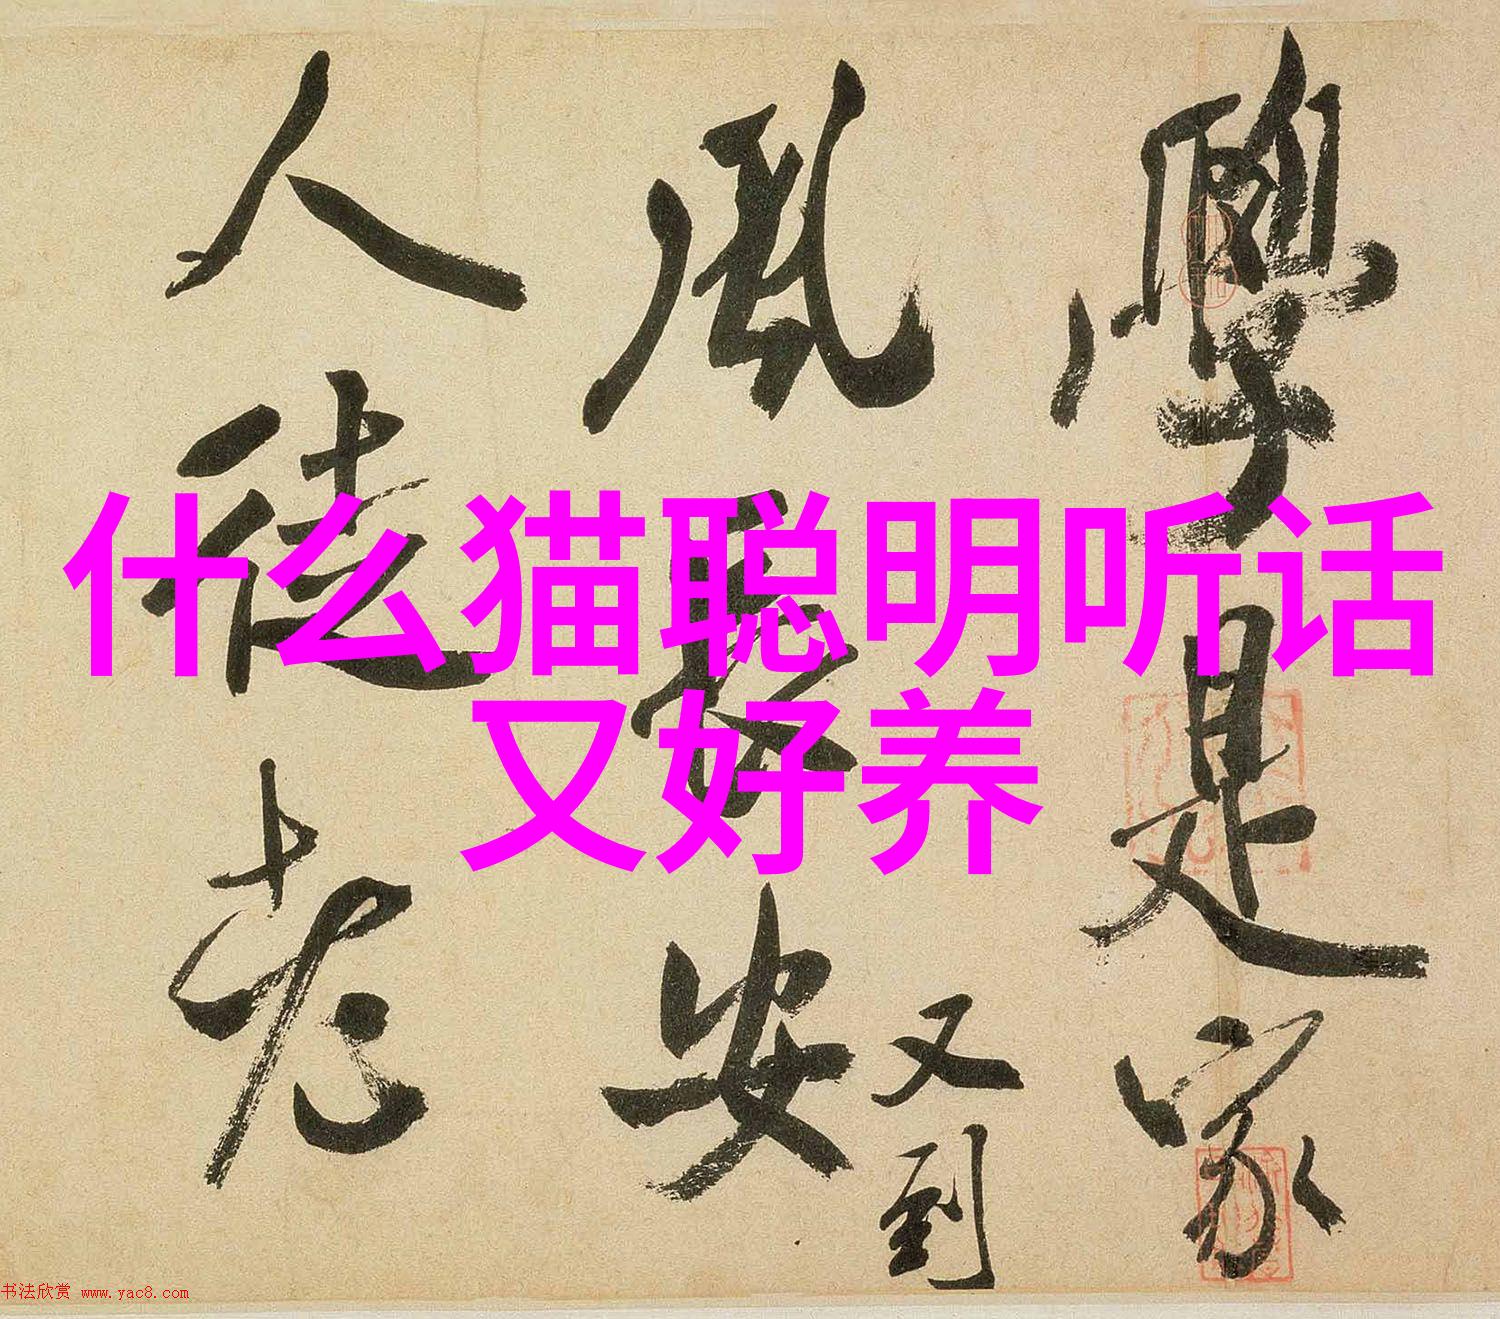 什么猫聪明听话
又好养
學是家
風長安又到
人徒老
书法欣赏 www.yac8.com